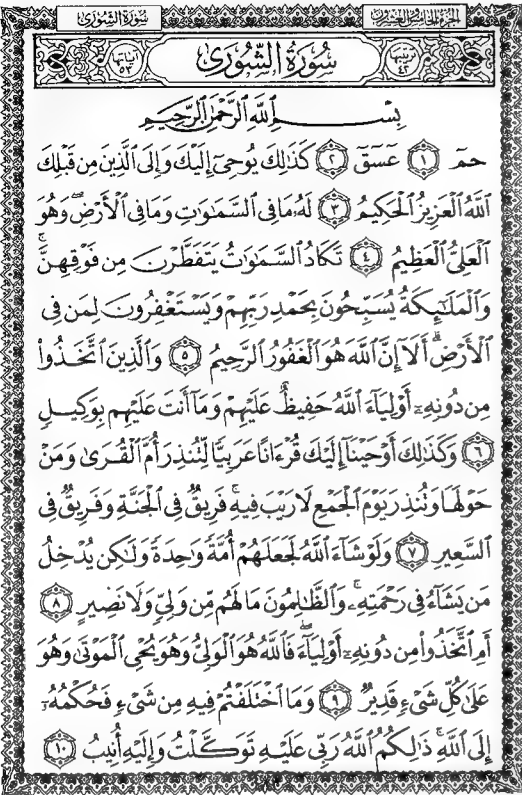 سُورَةُ الشُّورَىٰ
الجزء الخامس والعشرون
ترتيبها ٤٢
سُورَةُ الشُّورَىٰ
آياتها ٥٣
بِسْمِ اللَّهِ الرَّحْمَٰنِ الرَّحِيمِ
حمٓ ١ عٓسٓقٓ ٢ كَذَٰلِكَ يُوحِىٓ إِلَيْكَ وَإِلَى ٱلَّذِينَ مِن قَبْلِكَ
ٱللَّهُ ٱلْعَزِيزُ ٱلْحَكِيمُ ٣ لَهُۥ مَا فِى ٱلسَّمَٰوَٰتِ وَمَا فِى ٱلْأَرْضِ ۖ وَهُوَ
ٱلْعَلِىُّ ٱلْعَظِيمُ ٤ تَكَادُ ٱلسَّمَٰوَٰتُ يَتَفَطَّرْنَ مِن فَوْقِهِنَّ ۚ
وَٱلْمَلَٰٓئِكَةُ يُسَبِّحُونَ بِحَمْدِ رَبِّهِمْ وَيَسْتَغْفِرُونَ لِمَن فِى
ٱلْأَرْضِ ۗ أَلَآ إِنَّ ٱللَّهَ هُوَ ٱلْغَفُورُ ٱلرَّحِيمُ ٥ وَٱلَّذِينَ ٱتَّخَذُوا۟
مِن دُونِهِۦٓ أَوْلِيَآءَ ٱللَّهُ حَفِيظٌ عَلَيْهِمْ وَمَآ أَنتَ عَلَيْهِم بِوَكِيلٍ
٦ وَكَذَٰلِكَ أَوْحَيْنَآ إِلَيْكَ قُرْءَانًا عَرَبِيًّا لِّتُنذِرَ أُمَّ ٱلْقُرَىٰ وَمَنْ
حَوْلَهَا وَتُنذِرَ يَوْمَ ٱلْجَمْعِ لَا رَيْبَ فِيهِ ۚ فَرِيقٌ فِى ٱلْجَنَّةِ وَفَرِيقٌ فِى
ٱلسَّعِيرِ ٧ وَلَوْ شَآءَ ٱللَّهُ لَجَعَلَهُمْ أُمَّةً وَٰحِدَةً وَلَٰكِن يُدْخِلُ
مَن يَشَآءُ فِى رَحْمَتِهِۦ ۚ وَٱلظَّٰلِمُونَ مَا لَهُم مِّن وَلِىٍّ وَلَا نَصِيرٍ ٨
أَمِ ٱتَّخَذُوا۟ مِن دُونِهِۦٓ أَوْلِيَآءَ ۖ فَٱللَّهُ هُوَ ٱلْوَلِىُّ وَهُوَ يُحْىِ ٱلْمَوْتَىٰ وَهُوَ
عَلَىٰ كُلِّ شَىْءٍ قَدِيرٌ ٩ وَمَا ٱخْتَلَفْتُمْ فِيهِ مِن شَىْءٍ فَحُكْمُهُۥٓ
إِلَى ٱللَّهِ ۚ ذَٰلِكُمُ ٱللَّهُ رَبِّى عَلَيْهِ تَوَكَّلْتُ وَإِلَيْهِ أُنِيبُ ١٠